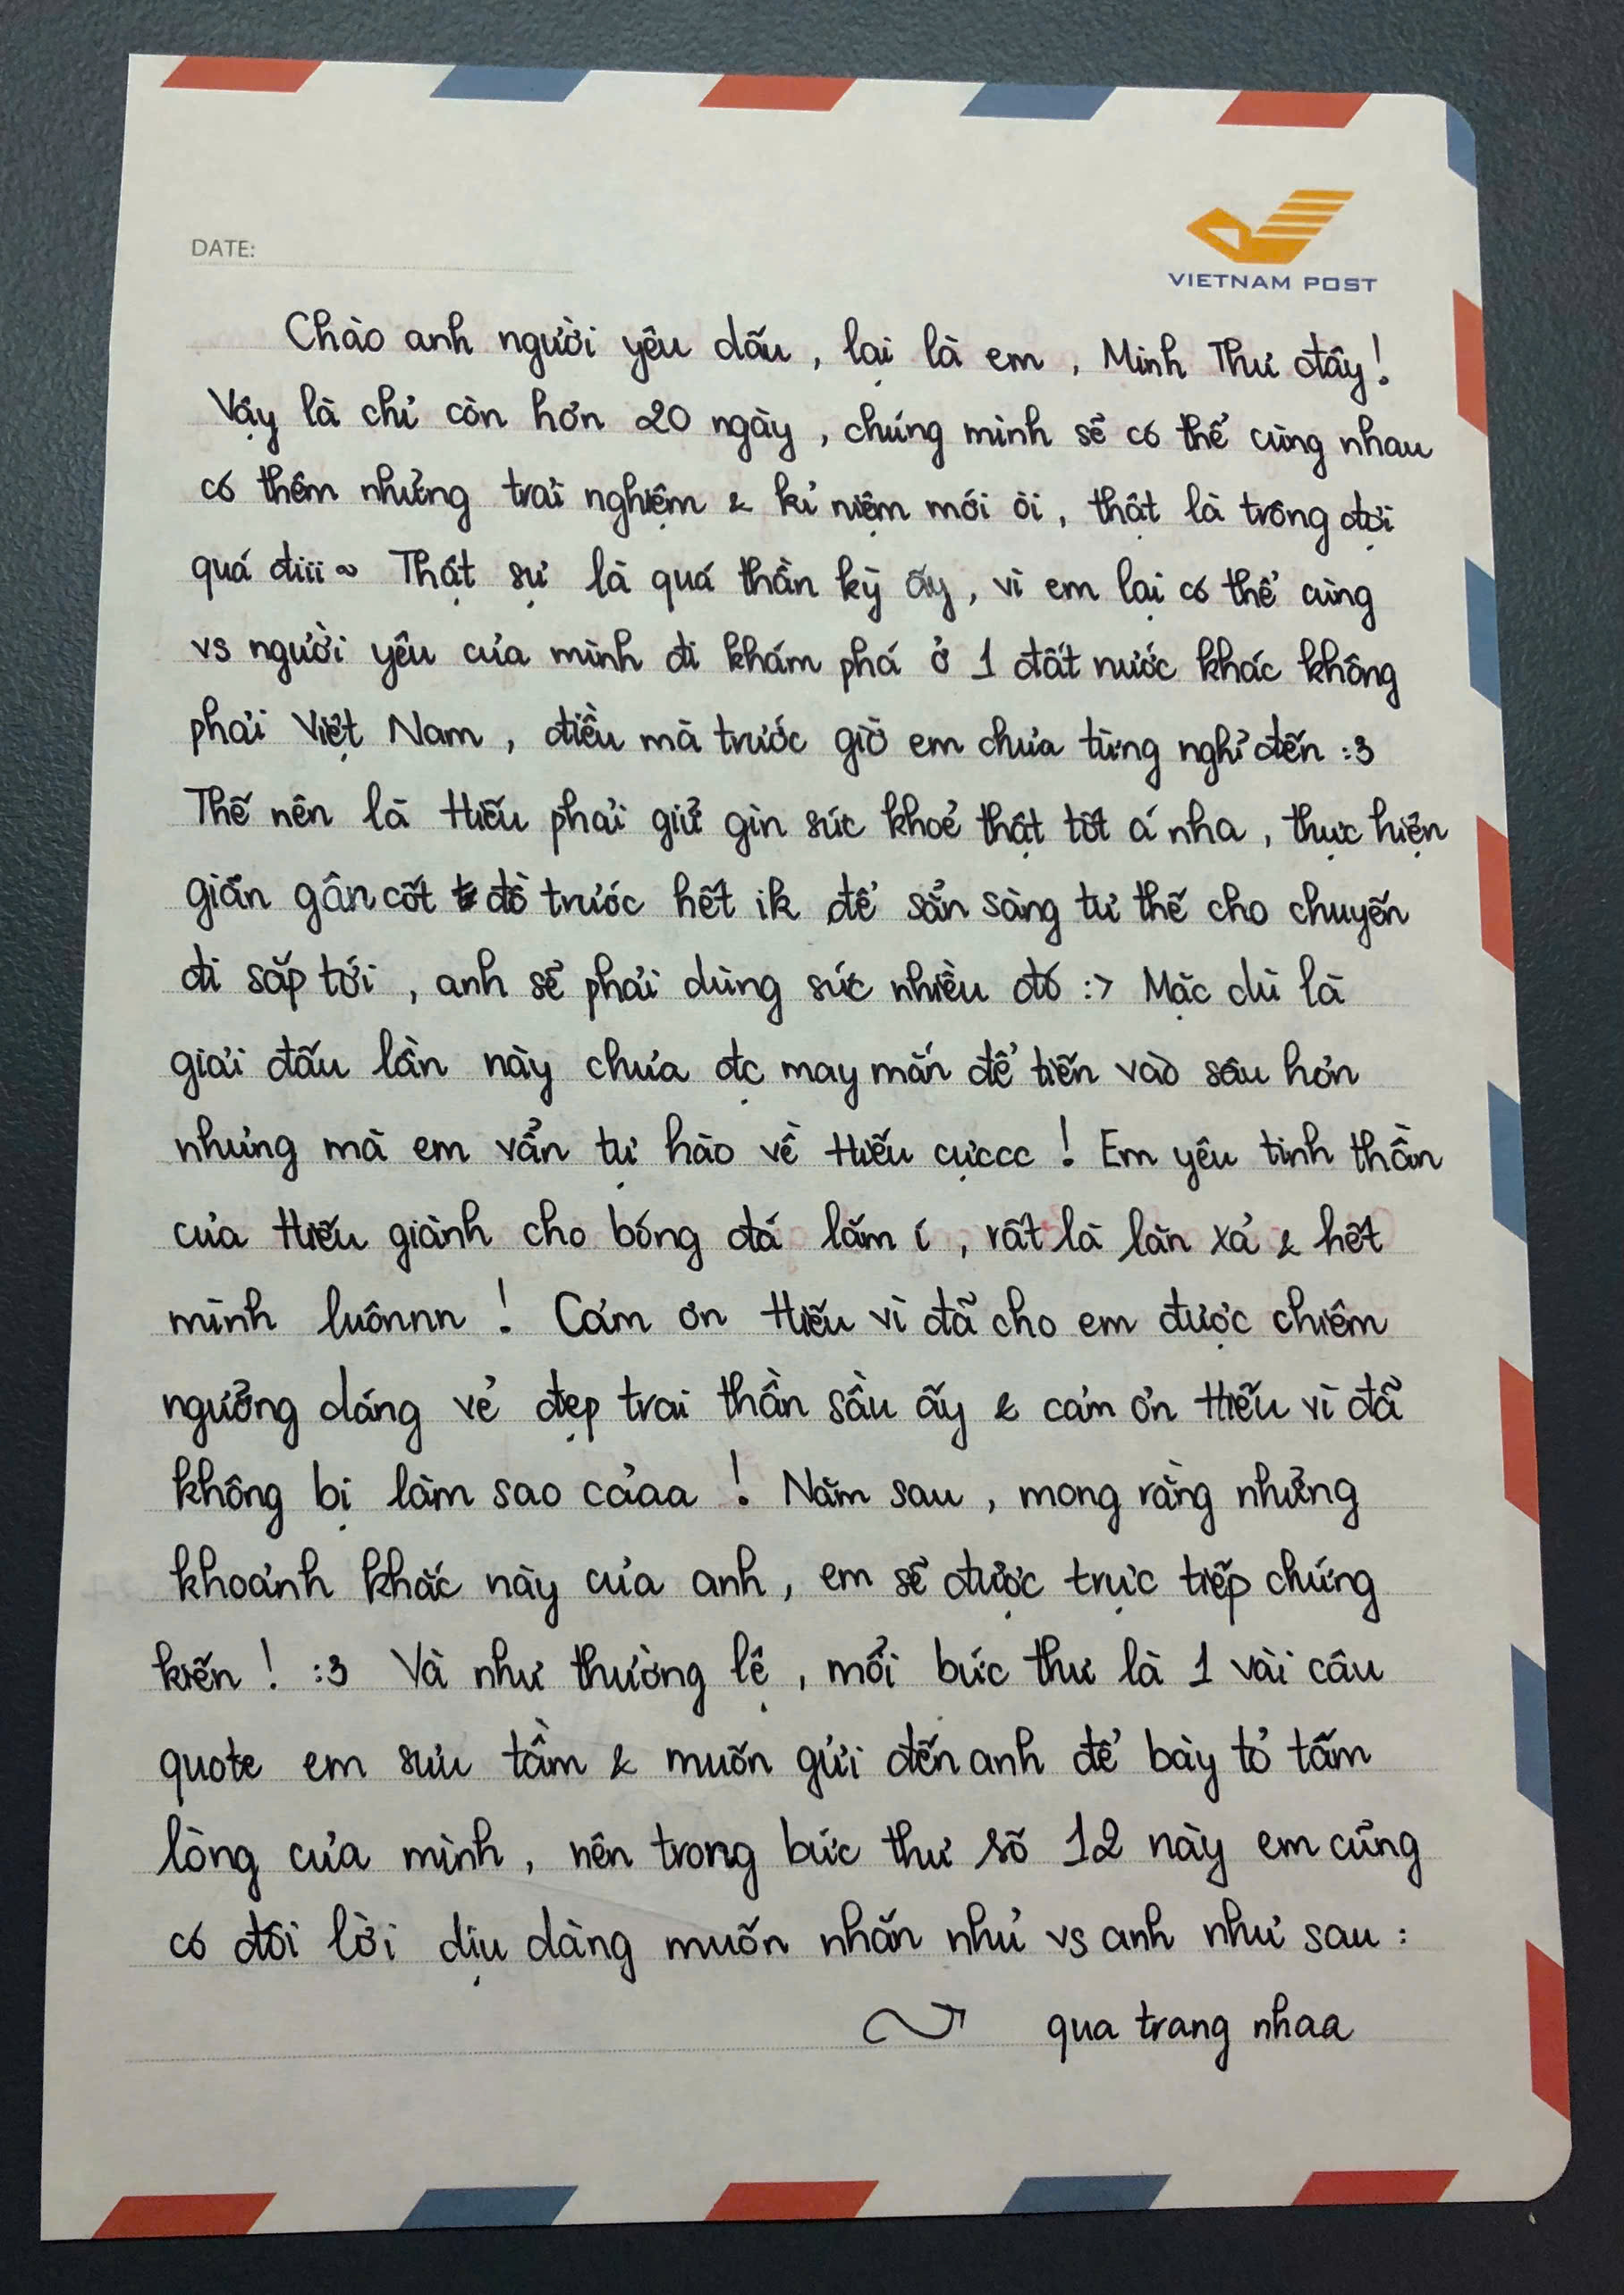 DATE:
VIETNAM POST
Chào anh người yêu dấu, lại là em, Minh Thư đây!
Vậy là chỉ còn hơn 20 ngày, chúng mình sẽ có thể cùng nhau
có thêm những trải nghiệm & kỉ niệm mới òi, thật là trông đợi
quá điii ~ Thật sự là quá thần kỳ ấy, vì em lại có thể cùng
vs người yêu của mình đi khám phá ở 1 đất nước khác không
phải Việt Nam, điều mà trước giờ em chưa từng nghĩ đến :3
Thế nên là Hiếu phải giữ gìn sức khoẻ thật tốt á nha, thực hiện
giãn gân cốt đồ trước hết ik để sẵn sàng tư thế cho chuyến
đi sắp tới, anh sẽ phải dùng sức nhiều đó :> Mặc dù là
giải đấu lần này chưa đc may mắn để tiến vào sâu hơn
nhưng mà em vẫn tự hào về Hiếu cựccc ! Em yêu tinh thần
của Hiếu giành cho bóng đá lắm í, rất là lăn xả & hết
mình luônnn ! Cảm ơn Hiếu vì đã cho em được chiêm
ngưỡng dáng vẻ đẹp trai thần sầu ấy & cảm ơn Hiếu vì đã
không bị làm sao cảaa ! Năm sau, mong rằng những
khoảnh khắc này của anh, em sẽ được trực tiếp chứng
kiến ! :3 Và như thường lệ, mỗi bức thư là 1 vài câu
quote em sưu tầm & muốn gửi đến anh để bày tỏ tấm
lòng của mình, nên trong bức thư số 12 này em cũng
có đôi lời dịu dàng muốn nhắn nhủ vs anh như sau :
qua trang nhaa